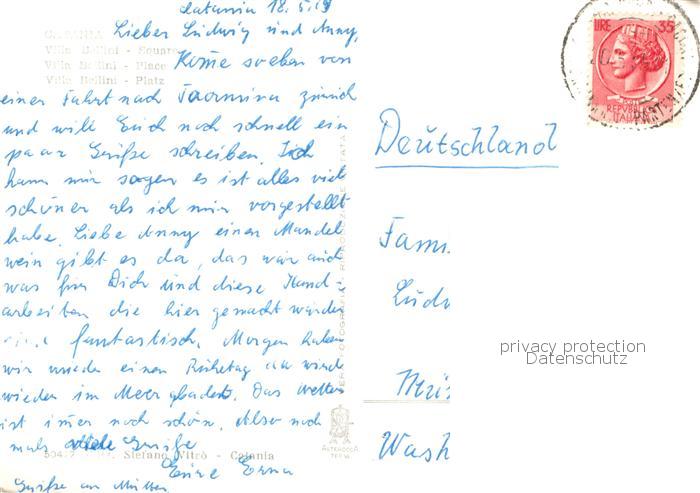 Catania 18.5.
CATANIA
Villa Bellini - Square
Villa Bellini - Place
Villa Bellini - Platz
Lieber Ludwig und Anny,
Kome soeben von
einer Fahrt nach Taormina zurück
und will Euch noch schnell ein
paar Grüße schreiben. Ich
kann nur sagen es ist alles viel
schöner als ich mir vorgestellt
habe. Liebe Anny einen Mandel
wein gibt es da, das wär auch
was für Dich und diese Hand-
arbeiten die hier gemacht werden
fantastisch. Morgen haben
wir wieder einen Ruhetag da wird
wieder im Meer gebadet. Das Wetter
ist imer noch schön. Also noch
mals viele Grüße
Eure Erna
Grüße an Mutter
Stefano Vitrò - Catania
VERA FOTOGRAFIA - RIPRODUZIONE VIETATA
ALTEROCCA
TERNI
LIRE 35
REPVBBLICA
ITALIANA
Deutschland
Fam.
Ludw
Wash
privacy protection
Datenschutz